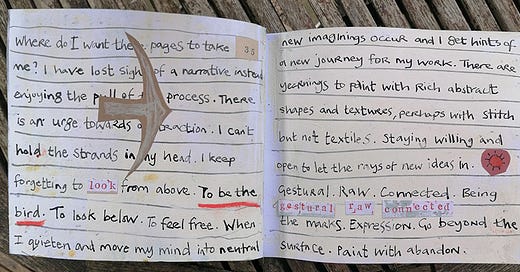 Where do I want these pages to take
35
me? I have lost sight of a narrative instead
enjoying the pull of the process. There
is an urge towards abstraction. I can't
hold the strands in my head. I keep
forgetting to look from above. To be the
bird. To look below. To feel free. When
I quieten and move my mind into neutral
new imaginings occur and I get hints of
a new journey for my work. There are
yearnings to paint with rich abstract
shapes and textures, perhaps with stitch
but not textiles. Staying willing and
open to let the rays of new ideas in.
Gestural. Raw. Connected. Being
gestural raw connected
the marks. Expression. Go beyond the
surface. Paint with abandon.